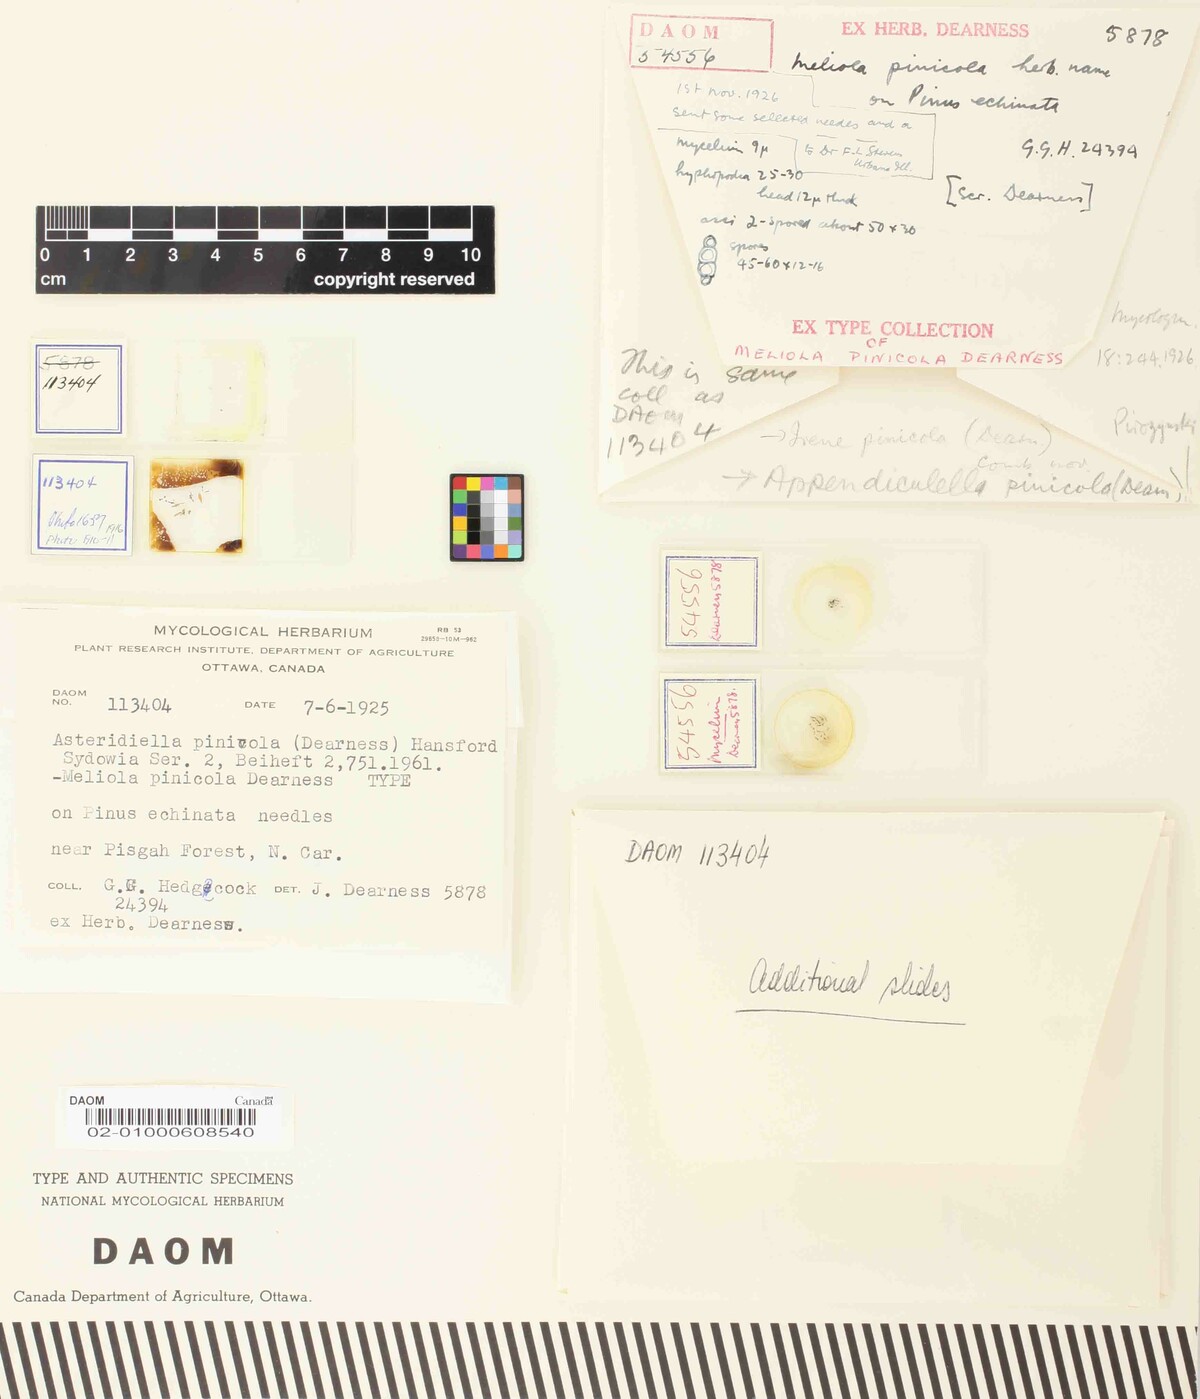 DAOM
54556
EX HERB. DEARNESS
5878
Meliola pinicola herb. name
on Pinus echinata
1st Nov. 1926
sent some selected needles and a
to Dr F.L. Stevens
Urbana Ill.
G.G.H. 24394
mycelium 9µ
hyphopodia 25-30
head 12µ thick
[scr. Dearness]
asci 2-spored about 50 x 30
spores
45-60 x 12-16
EX TYPE COLLECTION
OF
MELIOLA PINICOLA DEARNESS
Mycologia
18:244.1926
This is same
coll as
DAOM
113404
Pirozynski
→ Irene pinicola (Dearn)
comb. nov.
→ Appendiculella pinicola (Dearn)
0 1 2 3 4 5 6 7 8 9 10
cm
copyright reserved
5878
113404
113404
54556
Dearness 5878
54556
Mycelium
Dearness 5878.
MYCOLOGICAL HERBARIUM
RB 13
PLANT RESEARCH INSTITUTE, DEPARTMENT OF AGRICULTURE
OTTAWA, CANADA
DAOM
NO. 113404 DATE 7-6-1925
Asteridiella pinicola (Dearness) Hansford
Sydowia Ser. 2, Beiheft 2,751.1961.
-Meliola pinicola Dearness TYPE
on Pinus echinata needles
near Pisgah Forest, N. Car.
COLL. G.G. Hedgcock DET. J. Dearness 5878
24394
ex Herb. Dearness.
DAOM 113404
Additional slides
DAOM Canada
02-01000608540
TYPE AND AUTHENTIC SPECIMENS
NATIONAL MYCOLOGICAL HERBARIUM
DAOM
Canada Department of Agriculture, Ottawa.